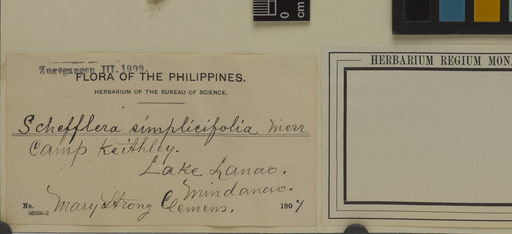 0
cm
Zugegangen III. 1909.
FLORA OF THE PHILIPPINES.
HERBARIUM OF THE BUREAU OF SCIENCE.
Schefflera simplicifolia Merr
Camp Keithley.
Lake Lanao.
Mindanao.
No. Mary Strong Clemens. 1907
36936-2
HERBARIUM REGIUM MONA